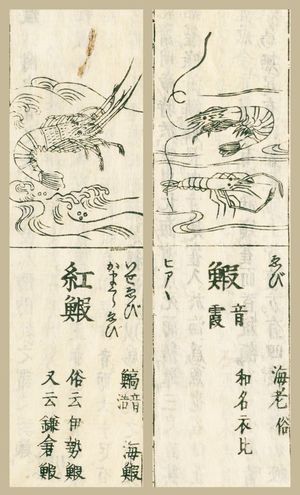 ゑび
海老俗
鰕
音霞
和名衣比
ヒアヽ
いせゑび
かまくらゑび
紅鰕
鰝
音浩
海鰕
俗云伊勢鰕
又云鎌倉鰕